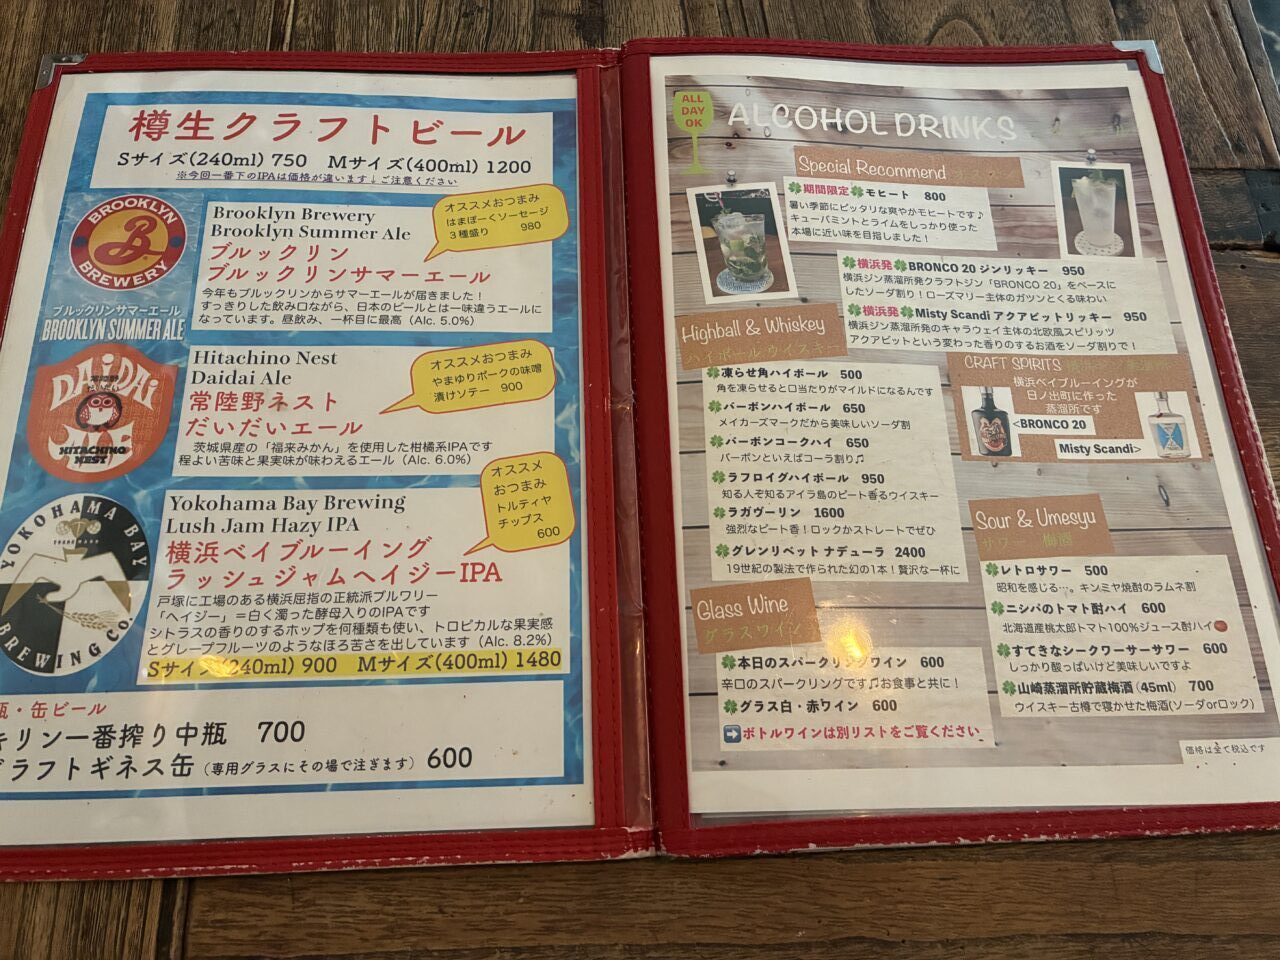 樽生クラフトビール
Sサイズ(240ml) 750 Mサイズ(400ml) 1200
※今回一番下のIPAは価格が違います↓ご注意ください
BROOKLYN
B
BREWERY
Brooklyn Brewery
Brooklyn Summer Ale
ブルックリン
ブルックリンサマーエール
オススメおつまみ
はまぽーくソーセージ
3種盛り 980
今年もブルックリンからサマーエールが届きました!
すっきりした飲み口ながら、日本のビールとは一味違うエールに
なっています。昼飲み、一杯目に最高(Alc. 5.0%)
ブルックリンサマーエール
BROOKLYN SUMMER ALE
DAiDAi
だいだい
HITACHINO
NEST
Hitachino Nest
Daidai Ale
常陸野ネスト
だいだいエール
オススメおつまみ
やまゆりポークの味噌
漬けソテー 900
茨城県産の「福来みかん」を使用した柑橘系IPAです
程よい苦味と果実味が味わえるエール(Alc. 6.0%)
YOKOHAMA BAY
BREWING CO.
Yokohama Bay Brewing
Lush Jam Hazy IPA
横浜ベイブルーイング
ラッシュジャムヘイジーIPA
オススメ
おつまみ
トルティヤ
チップス
600
戸塚に工場のある横浜屈指の正統派ブルワリー
「ヘイジー」=白く濁った酵母入りのIPAです
シトラスの香りのするホップを何種類も使い、トロピカルな果実感
とグレープフルーツのようなほろ苦さを出しています(Alc. 8.2%)
Sサイズ(240ml) 900 Mサイズ(400ml) 1480
瓶・缶ビール
キリン一番搾り中瓶 700
ドラフトギネス缶(専用グラスにその場で注ぎます) 600
ALL
DAY
OK
ALCOHOL DRINKS
Special Recommend オススメ
期間限定 モヒート 800
暑い季節にピッタリな爽やかモヒートです♪
キューバミントとライムをしっかり使った
本場に近い味を目指しました!
横浜発 BRONCO 20 ジンリッキー 950
横浜ジン蒸溜所発クラフトジン「BRONCO 20」をベースに
したソーダ割り!ローズマリー主体のガツンとくる味わい
横浜発 Misty Scandi アクアビットリッキー 950
横浜ジン蒸溜所発のキャラウェイ主体の北欧風スピリッツ
アクアビットという変わった香りのするお酒をソーダ割りで!
Highball & Whiskey
ハイボール ウイスキー
凍らせ角ハイボール 500
角を凍らせると口当たりがマイルドになるんです
バーボンハイボール 650
メイカーズマークだから美味しいソーダ割
バーボンコークハイ 650
バーボンといえばコーラ割り♫
ラフロイグハイボール 950
知る人ぞ知るアイラ島のピート香るウイスキー
ラガヴーリン 1600
強烈なピート香!ロックかストレートでぜひ
グレンリベット ナデューラ 2400
19世紀の製法で作られた幻の1本!贅沢な一杯に
CRAFT SPIRITS
横浜ベイブルーイングが
日ノ出町に作った
蒸溜所です
<BRONCO 20
Misty Scandi>
Glass Wine
グラスワイン
本日のスパークリングワイン 600
辛口のスパークリングです♫お食事と共に!
グラス白・赤ワイン 600
➡ボトルワインは別リストをご覧ください
Sour & Umesyu
サワー 梅酒
レトロサワー 500
昭和を感じる…。キンミヤ焼酎のラムネ割
ニシパのトマト酎ハイ 600
北海道産桃太郎トマト100%ジュース酎ハイ
すてきなシークワーサーサワー 600
しっかり酸っぱいけど美味しいですよ
山崎蒸溜所貯蔵梅酒 (45ml) 700
ウイスキー古樽で寝かせた梅酒(ソーダorロック)
価格は全て税込です